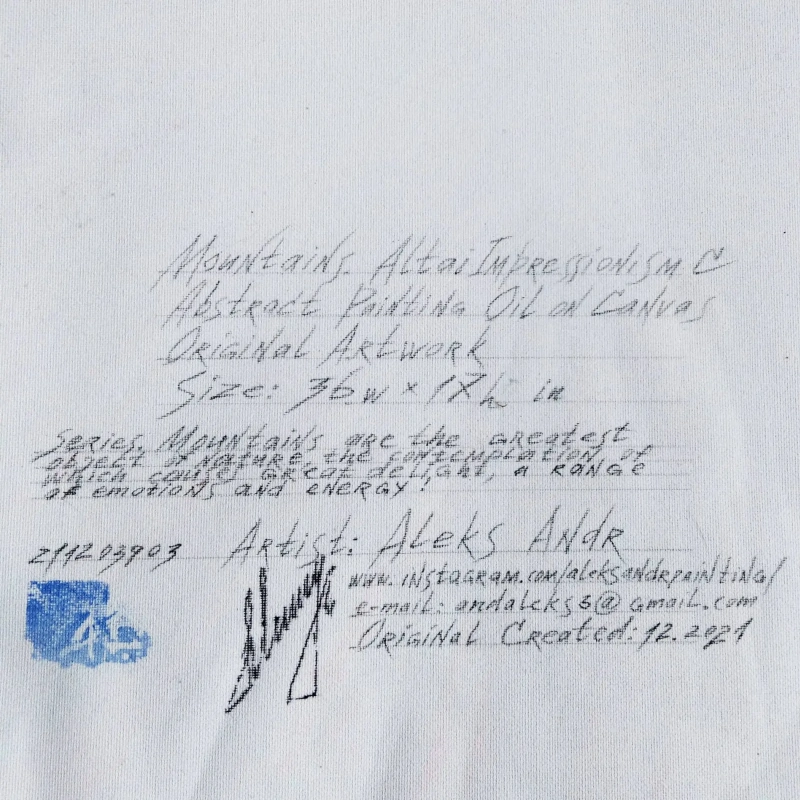 Mountains. Altai Impressionism C
Abstract Painting Oil on Canvas
Original Artwork
Size: 36w × 17h in
Series. Mountains are the greatest
object of nature, the contemplation of
which causes great delight, a range
of emotions and energy!
Artist: Aleks Andr
211203903
www.instagram.com/aleksandrpainting/
e-mail: andaleks3@gmail.com
Original Created: 12.2021